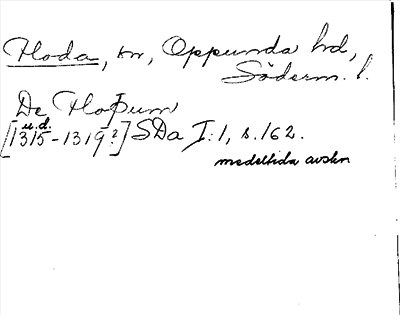 Floda, sn, Oppunda hd,
Söderm. l.
De Floþum
u.d.
[1315-1319?] SDa I:1, s.162.
medeltida avskr